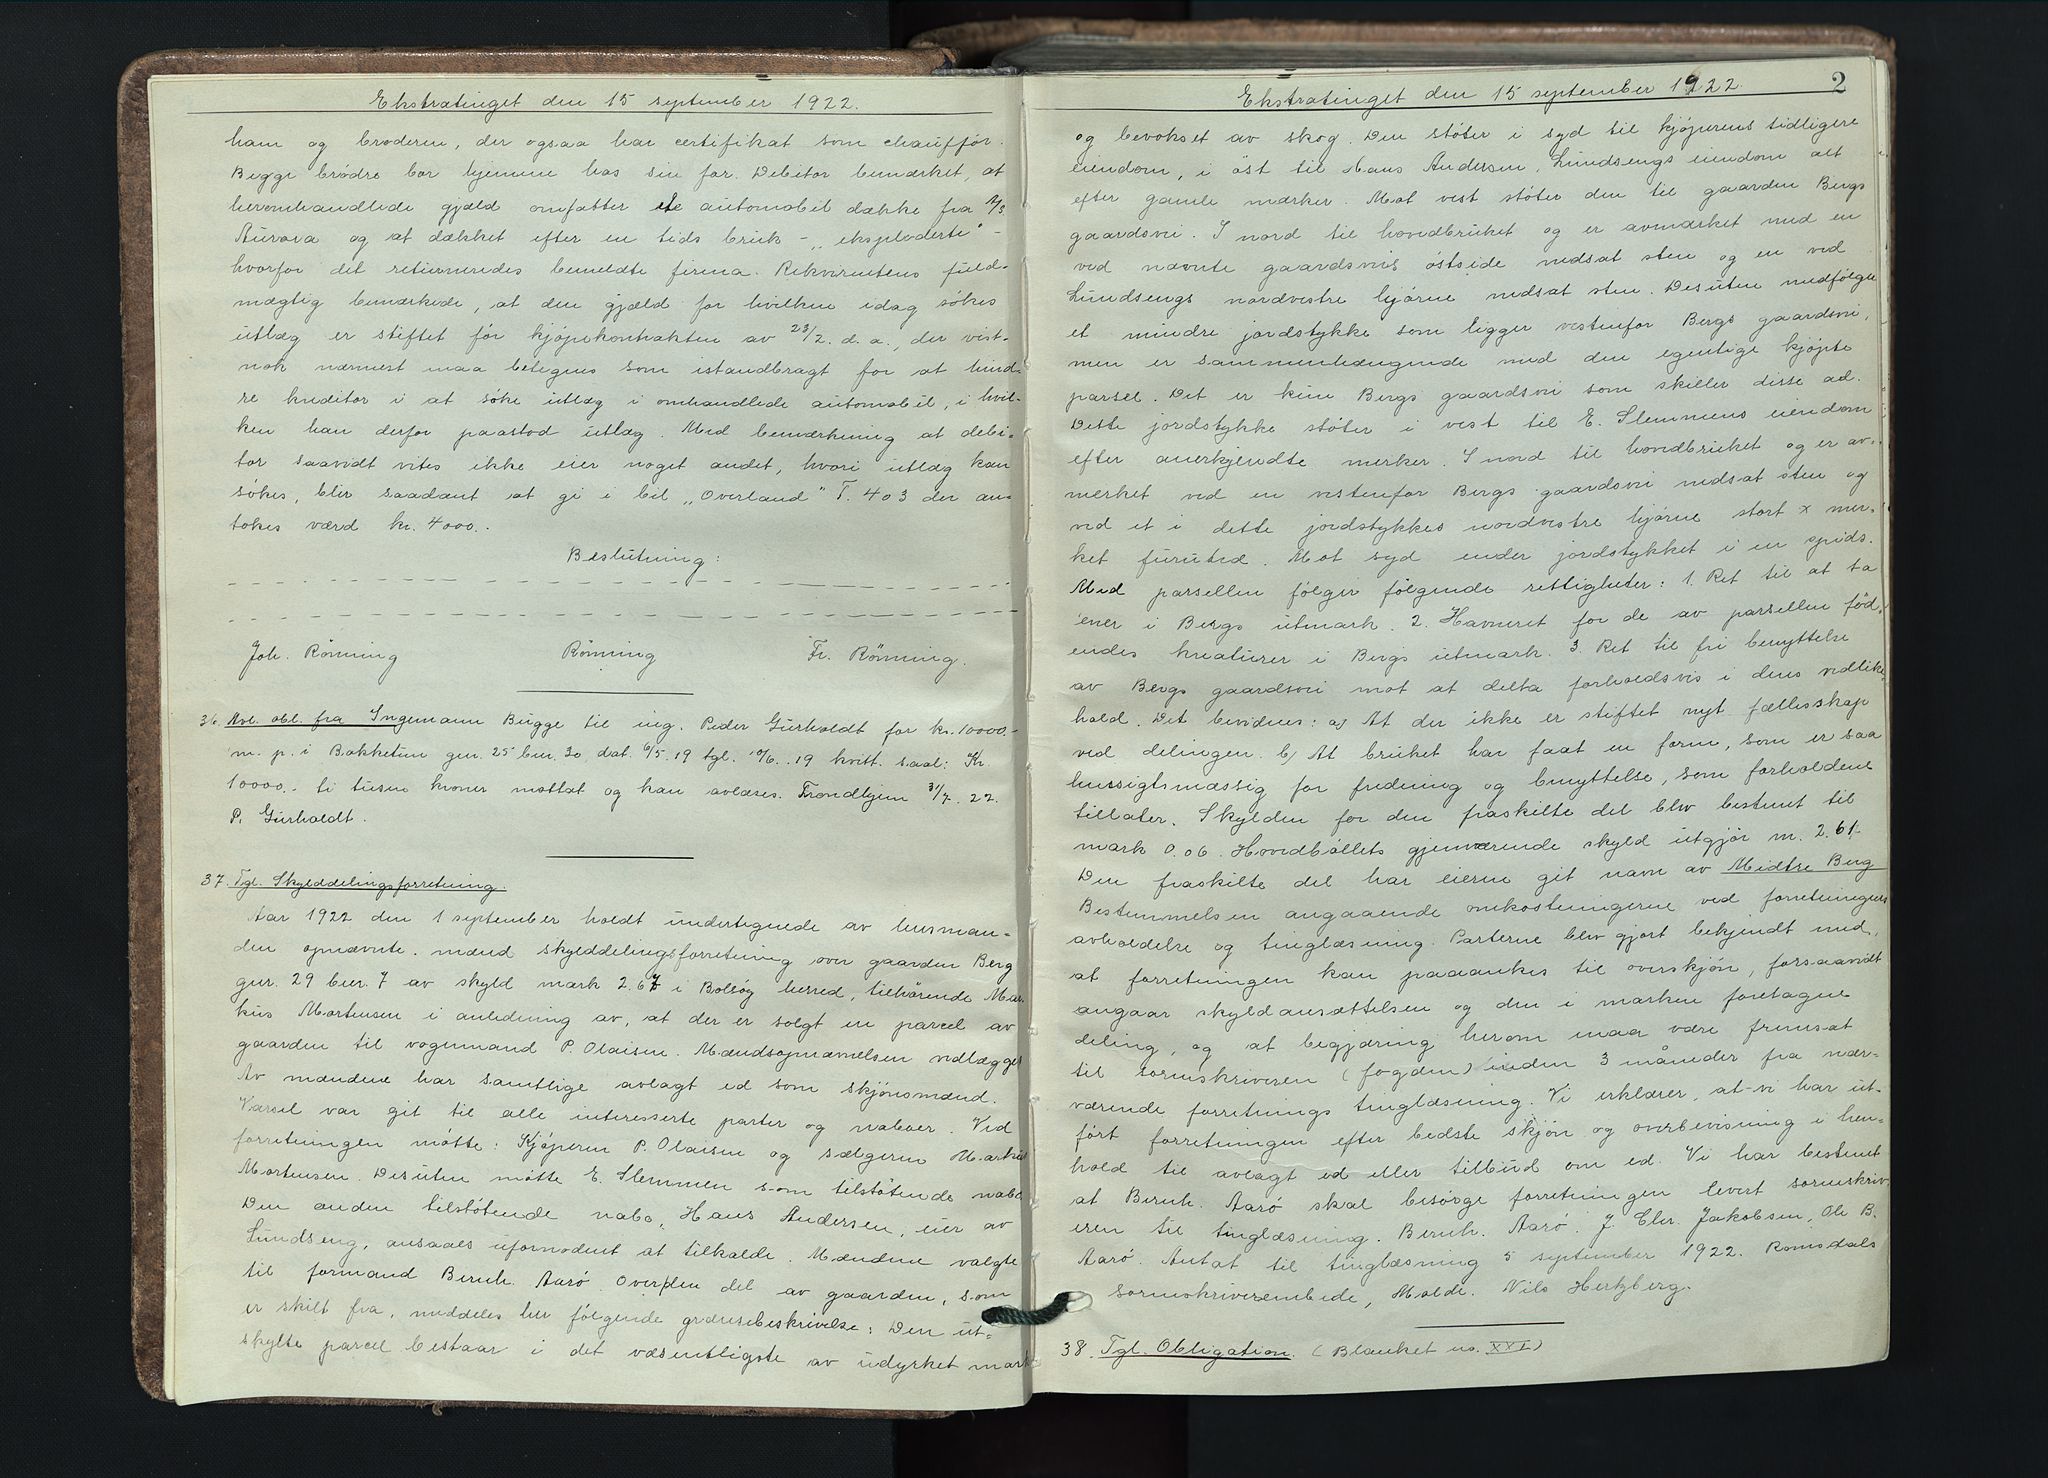 Ekstratinget den 15 september 1922.
ham og broderen, der ogsaa har certifikat som chauffør.
Begge brødre bor hjemme hos sin far. Debitor bemærket, at
heromhandlede gjæld omfatter ete automobil dække fra A/S
Aurora og at dækket efter en tids bruk - "eksploderte" -
hvorfor det returneredes bemeldte firma. Rekvirentens fuld-
mægtig bemærkede, at den gjæld for hvilken idag søkes
utlæg er stiftet før kjøpekontrakten av 23/2. d. a., der vist-
nok nærmest maa betegnes som istandbragt for at hind-
re kreditor i at søke utlæg i omhandlede automobil, i hvil-
ken han derfor paastod utlæg. Med bemærkning at debi-
tor saavidt vites ikke eier noget andet, hvori utlæg kan
søkes, blir saadant at gi i bil "Overland" T. 403 der an-
tokes værd kr. 4000..
Beslutning:
Joh. Rønning Rønning Fr. Rønning.
36. Avl. obl. fra Ingemann Bugge til ing. Peder Gürholdt for kr. 10000.-
m. p. i Bakketun gnr. 25 bnr. 30, dat. 6/5. 19 tgl. 10/6. 19 kvitt. saal: Kr.
10000.- ti tusen kroner mottat og kan avlæses. Trondhjem 31/7. 22.
P. Gürholdt.
37. Tgl. Skylddelingsforretning.
Aar 1922 den 1 september holdt undertegnede av lensman-
den opnævnte mænd skylddelingsforretning over gaarden Berg
gnr. 29 bnr. 7 av skyld mark 2.67 i Bolsøy herred, tilhørende Mar-
kus Mortensen i anledning av, at der er solgt en parcel av
gaarden til vognmand P. Olaisen. Mændsopnævnelsen vedlægges
Av mændene har samtlige avlagt ed som skjønsmænd.
Varsel var git til alle interesserte parter og naboer. Ved
forretningen møtte: Kjøperen P. Olaisen og sælgeren Markus
Mortensen. Desuten møtte E. Slemmen som tilstøtende nabo
Den anden tilstøtende nabo, Hans Andersen, eier av
Lundseng, ansaaes ufornødent at tilkalde. Mændene valgte
til formand Bernh. Aarø. Over den del av gaarden, som
er skilt fra, meddeles her følgende grænsebeskrivelse: Den ut-
skylte parcel bestaar i det væsentligste av udyrket mark
Ekstratinget den 15 september 1922. 2
og bevokset av skog. Den støter i syd til kjøperens tidligere
eiendom, i øst til Hans Andersen, Lundsengs eiendom alt
efter gamle mærker. Mot vest støter den til gaarden Bergs
gaardsvei. I nord til hovedbruket og er avmærket med en
ved nævnte gaardsveis østside nedsat sten og en ved
Lundsengs nordvestre hjørne nedsat sten. Desuten medfølger
et mindre jordstykke som ligger vestenfor Bergs gaardsvei,
men er sammenhængende med den egentlige kjøpte
parsel. Det er kun Bergs gaardsvei som skiller disse ad.
Dette jordstykke støter i vest til E. Slemmens eiendom
efter anerkjendte merker. I nord til hovedbruket og er av-
merket ved en vestenfor Bergs gaardsvei nedsat sten og
ved et i dette jordstykkes nordvestre hjørne stort x mer-
ket furutræ. Mot syd ender jordstykket i en spids.
Med parsellen følger følgende rettigheter: 1. Ret til at ta
ener i Bergs utmark. 2. Havneret for de av parsellen fød-
endes kreaturer i Bergs utmark. 3. Ret til fri benyttelse
av Bergs gaardsvei mot at delta forholdsvis i dens vedlike-
hold. Det bevidnes: a) At der ikke er stiftet nyt fællesskap
ved delingen. b) At bruket har faat en form, som er saa
hensigtsmæssig for fredning og benyttelse, som forholdene
tillater. Skylden for den fraskilte del blev bestemt til
mark 0.06. Hovedbøllets gjenværende skyld utgjør m. 2.61.
Den fraskilte del har eieren git navn av Midtre Berg
Bestemmelsen angaaende omkostningerne ved forretningens
avholdelse og tinglæsning. Parterne blev gjort bekjendt med,
at forretningen kan paaankes til overskjøn, forsaavidt
angaar skyldansættelsen og den i marken foretagne
deling, og at begjæring herom maa være fremsat
til sorenskriveren (fogden) inden 3 måneder fra nær-
værende forretnings tinglæsning. Vi erklærer, at vi har ut-
ført forretningen efter bedste skjøn og overbevisning i hen-
hold til avlagt ed eller tilbud om ed. Vi har bestemt
at Bernh. Aarø skal besørge forretningen levert sorenskriv-
eren til tinglæsning. Bernh. Aarø. J. Chr. Jakobsen, Ole B.
Aarø. Antat til tinglæsning 5 september 1922. Romsdals
sorenskriverembede, Molde. Nils Hertzberg.
38. Tgl. Obligation. (Blanket no. XXI)